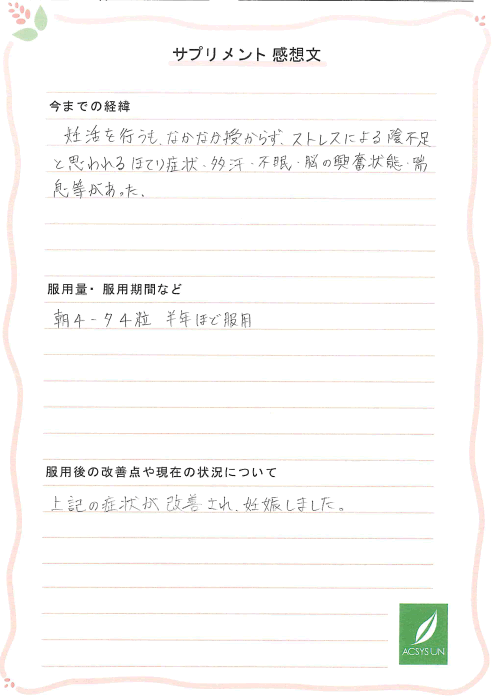 サプリメント 感想文
今までの経緯
妊活を行うも、なかなか授からず、ストレスによる陰不足
と思われるほてり症状・多汗・不眠・脳の興奮状態・喘
息等があった。
服用量・服用期間など
朝4-夕4粒 半年ほど服用
服用後の改善点や現在の状況について
上記の症状が改善され、妊娠しました。
ACSYSUN